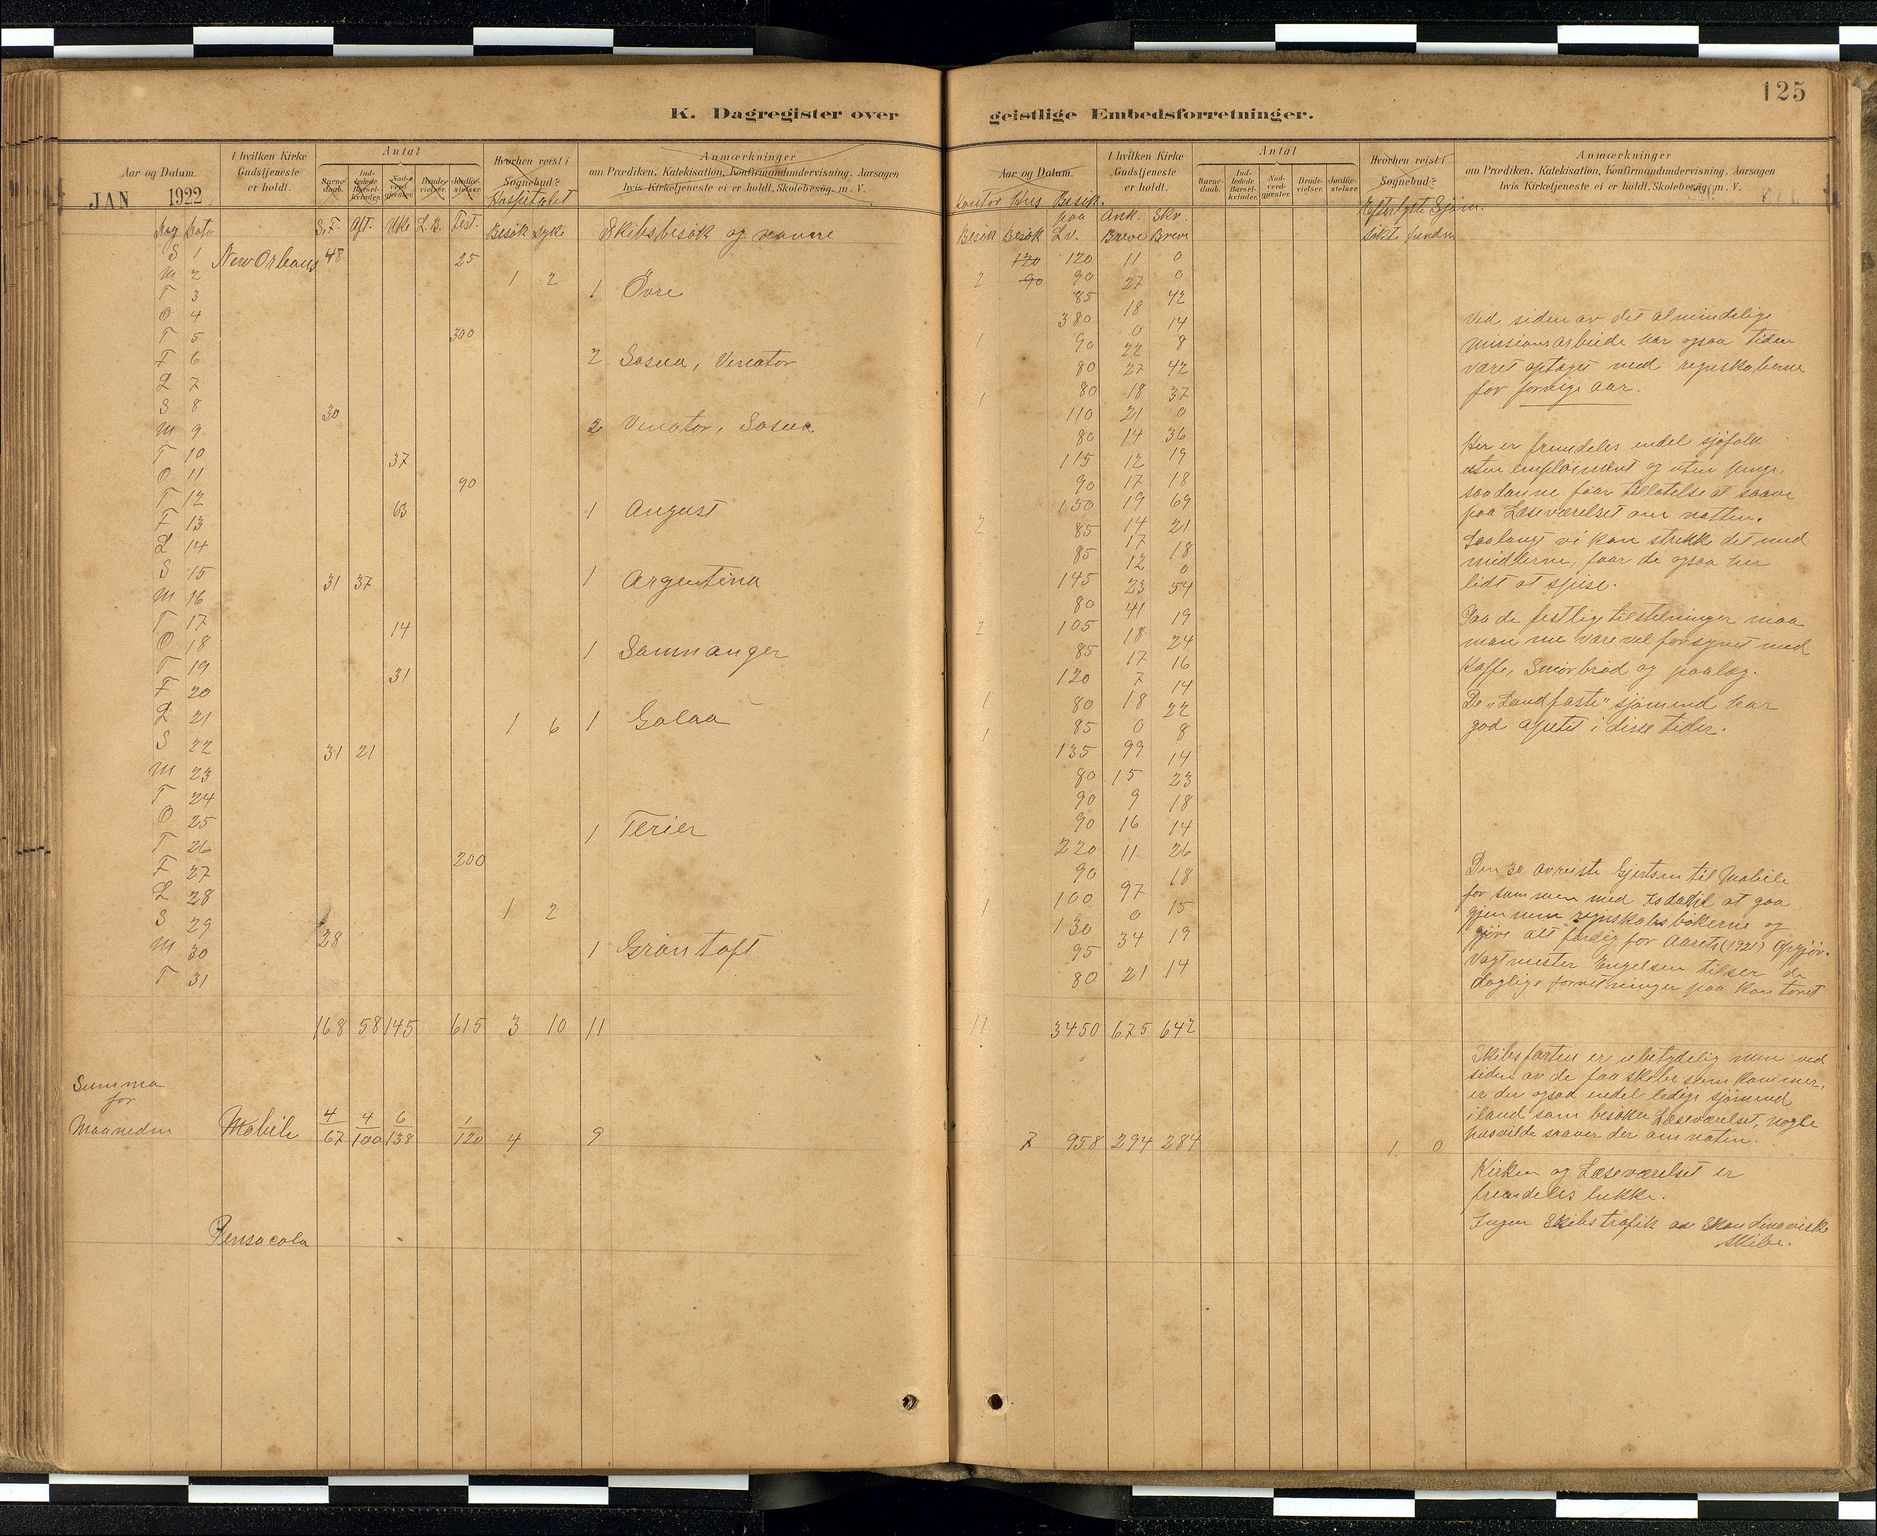 125
K. Dagregister over geistlige Embedsforretninger.
Aar og Datum.
I hvilken Kirke Gudstjeneste er holdt.
Antal
Barnedaab.
Indledede Barselkvinder.
Nadverdgjester.
Brudevielser.
Jordfæstelser
Hvorhen reist i Sognebud?
Anmærkninger
om Prædiken, Katekisation, Konfirmandundervisning, Aarsagen
hvis Kirketjeneste ei er holdt, Skolebesøg m. V.
Aar og Datum.
I hvilken Kirke Gudstjeneste er holdt.
Antal
Barnedaab.
Indledede Barselkvinder.
Nadverdgjester.
Brudevielser.
Jordfæstelser
Hvorhen reist i Sognebud?
Anmærkninger
om Prædiken, Katekisation, Konfirmandundervisning, Aarsagen
hvis Kirketjeneste ei er holdt, Skolebesøg m. V.
JAN 1922
Hospitalet
Kontor Hus Besøk
Dag Dato S.F. Aft. Uke Fest. Besøk syke Skibsbesøk og navne
Besøk Besøk paa Lv. Ank. Breve Skr. Breve
Efterlyste Sjøm.
søkte fundne
S 1 New Orleans 48 25 120 120 11 0
M 2 1 2 2 90 90 27 0
T 3 1 Övre 85 18 42
O 4 380 0 14
T 5 300 1 90 22 8
F 6 2 Sosua, Venator 80 27 42
L 7 1 80 18 37
S 8 30 110 21 0
M 9 2 Venator, Sosua 80 14 36
T 10 37 115 12 19
O 11 90 90 17 18
T 12 63 1 August 150 19 69
F 13 2 85 14 21
L 14 85 17 18
S 15 31 37 1 Argentina 145 12 0
M 16 80 23 54
T 17 14 2 105 41 19
O 18 1 Samnanger 85 18 24
T 19 31 120 17 16
F 20 1 80 7 14
L 21 1 6 1 Galaa 1 85 18 22
S 22 31 21 135 0 8
M 23 80 99 14
T 24 90 15 23
O 25 1 Terier 90 9 18
T 26 200 220 16 14
F 27 90 11 26
L 28 1 2 1 100 97 18
S 29 28 130 0 15
M 30 1 Grontoft 95 34 19
T 31 80 21 14
168 58 145 615 3 10 11 11 3450 675 642
Summa
for
Maaneden Mobile 4/67 4/100 6/138 1/120 4 9 7 958 294 284 1 0
Pensacola
Ved siden av det almindelige
missionsarbeide har ogsaa tiden
været optaget med regnskaberne
for forrige aar.
Her er fremdeles endel sjøfolk
uten emploiment og uten penge,
saadanne faar tillatelse at saave
paa Læseværelset om natten.
Saalangt vi kan strekke det med
midlerne, faar de ogsaa her
lidt at spise.
Paa de festlige tilstelninger maa
man nu være vel forsynet med
Kaffe, Smørbrød og paalæg.
De „Landfaste" sjømend har
god apetet i disse tider.
Den 30 avreiste Gjertsen til Mobile
for sammen med at gaa
gjennem regnskabsbøkerne og
gjøre alt færdig for Aarets (1921) Opgjør.
Vagtmester Engelsen tilser de
daglige forretninger paa kontoret
Skibsfarten er ubetydelig men ved
siden av de faa skibe som kommer,
er der ogsaa endel ledige sjømend
iland som besøker Læseværelset, nogle
husvilde saaver der om naten.
Kirken og Læseværelset er
fremdeles lukke.
Ingen Skibstrafik av Skandinaviske
Skibe.